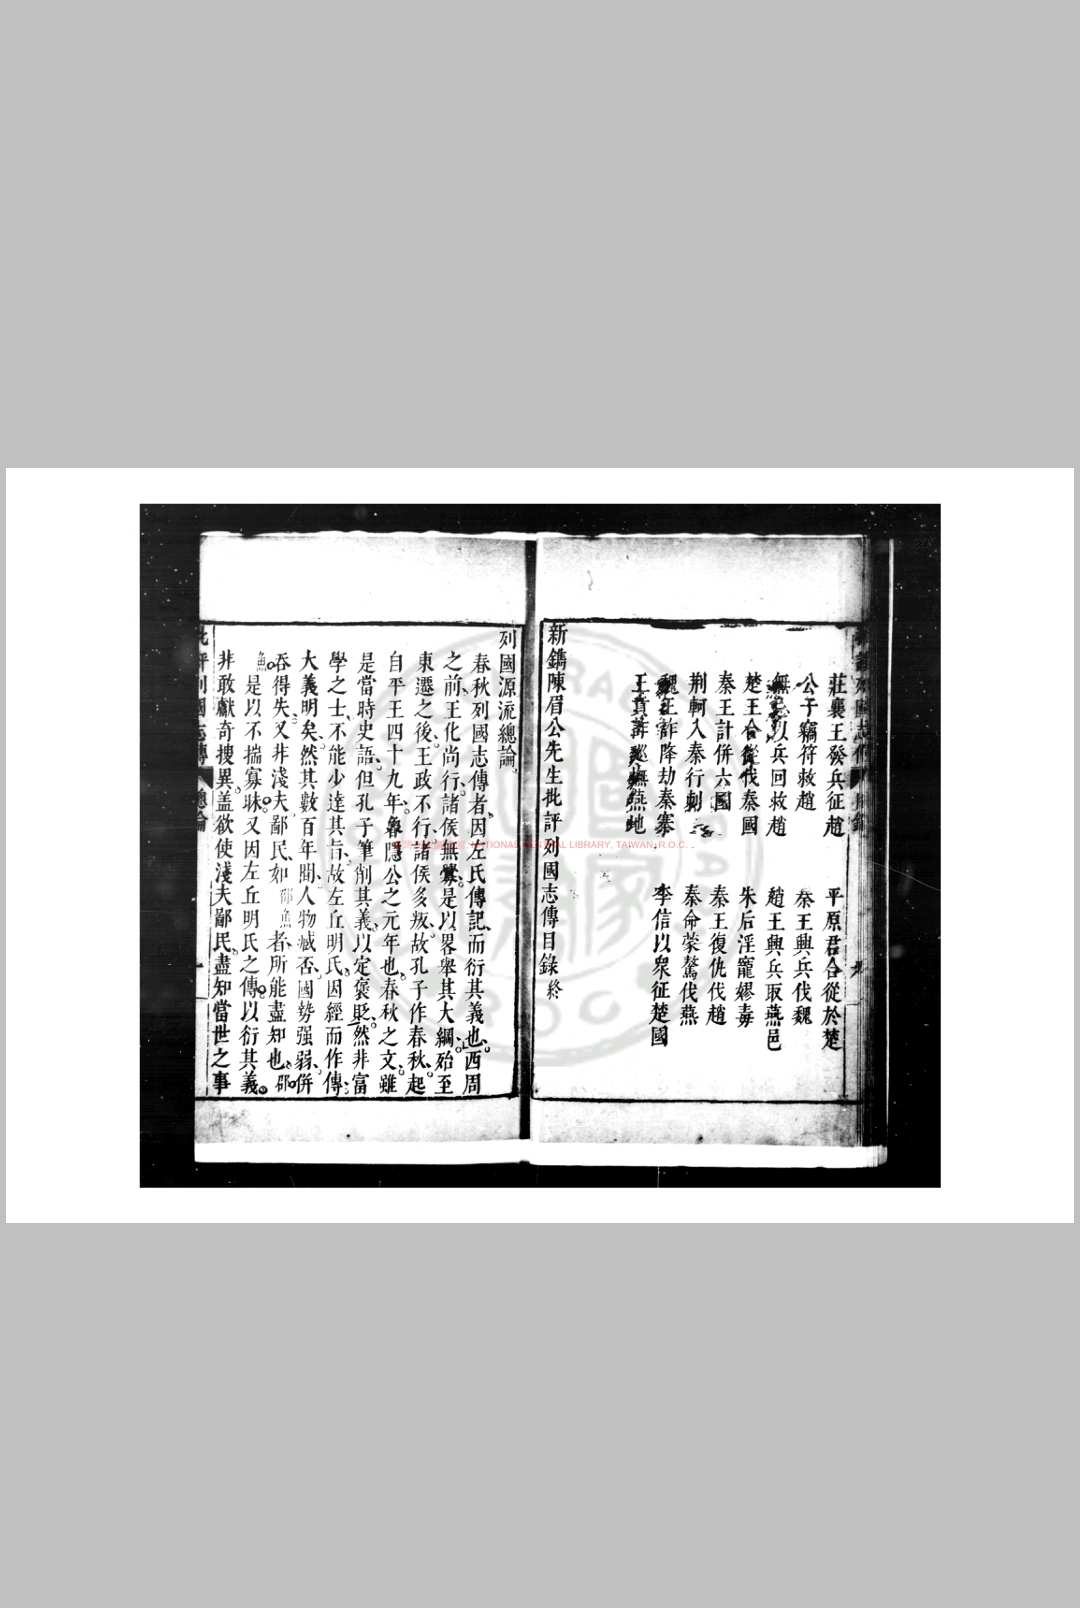 莊襄王發兵征趙　平原君合從於楚
公子竊符救趙　秦王興兵伐魏
無忌以兵回救趙　趙王興兵取燕邑
楚王合從伐秦國　朱后淫寵嫪毐
秦王計併六國　秦王復仇伐趙
荆軻入秦行刺　秦命蒙驁伐燕
魏王詐降劫秦寨　李信以眾征楚國
新鐫陳眉公先生批評列國志傳目錄終
列國源流總論
春秋列國志傳者因左氏傳記而衍其義也西周
之前王化尚行諸侯無釁是以畧舉其大綱殆至
東遷之後王政不行諸侯多叛故孔子作春秋起
自平王四十九年魯隱公之元年也春秋之文雖
是當時史語但孔子筆削其義以定褒貶然非富
學之士不能少達其旨故左丘明氏因經而作傳
大義明矣然其數百年間人物臧否國勢强弱併
吞得失又非淺夫鄙民如邵魚者所能盡知也邵
魚是以不揣寡昧又因左丘明氏之傳以衍其義
非敢獻奇搜異盖欲使淺夫鄙民盡知當世之事
批評列國志傳　總論
NATIONAL CENTRAL LIBRARY, TAIWAN, R.O.C.